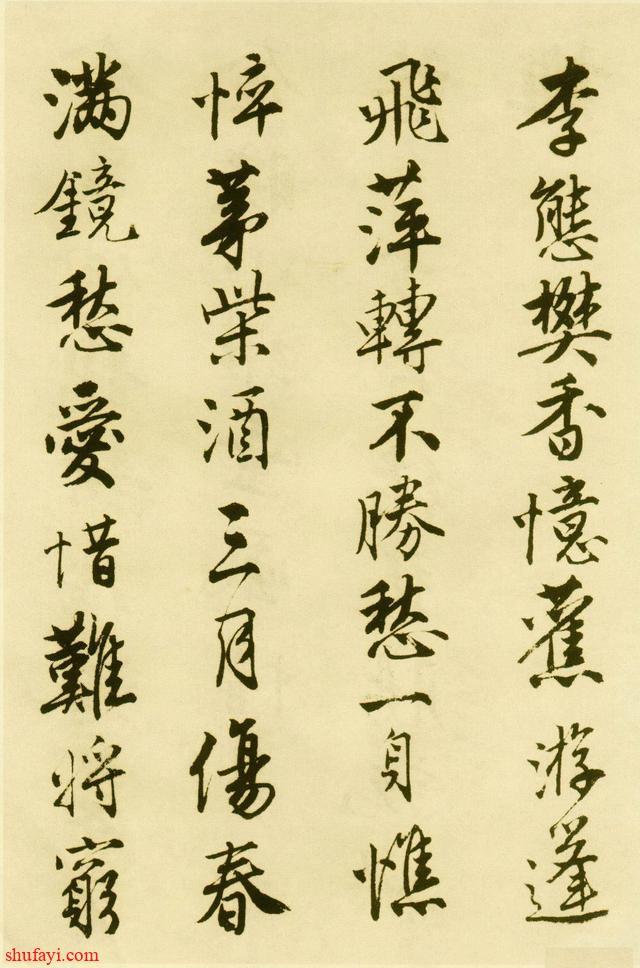 李態樊香憶舊游蓬
飛萍轉不勝愁一身憔
悴茅柴酒三月傷春
滿鏡愁愛惜難將窮
shufayi.com